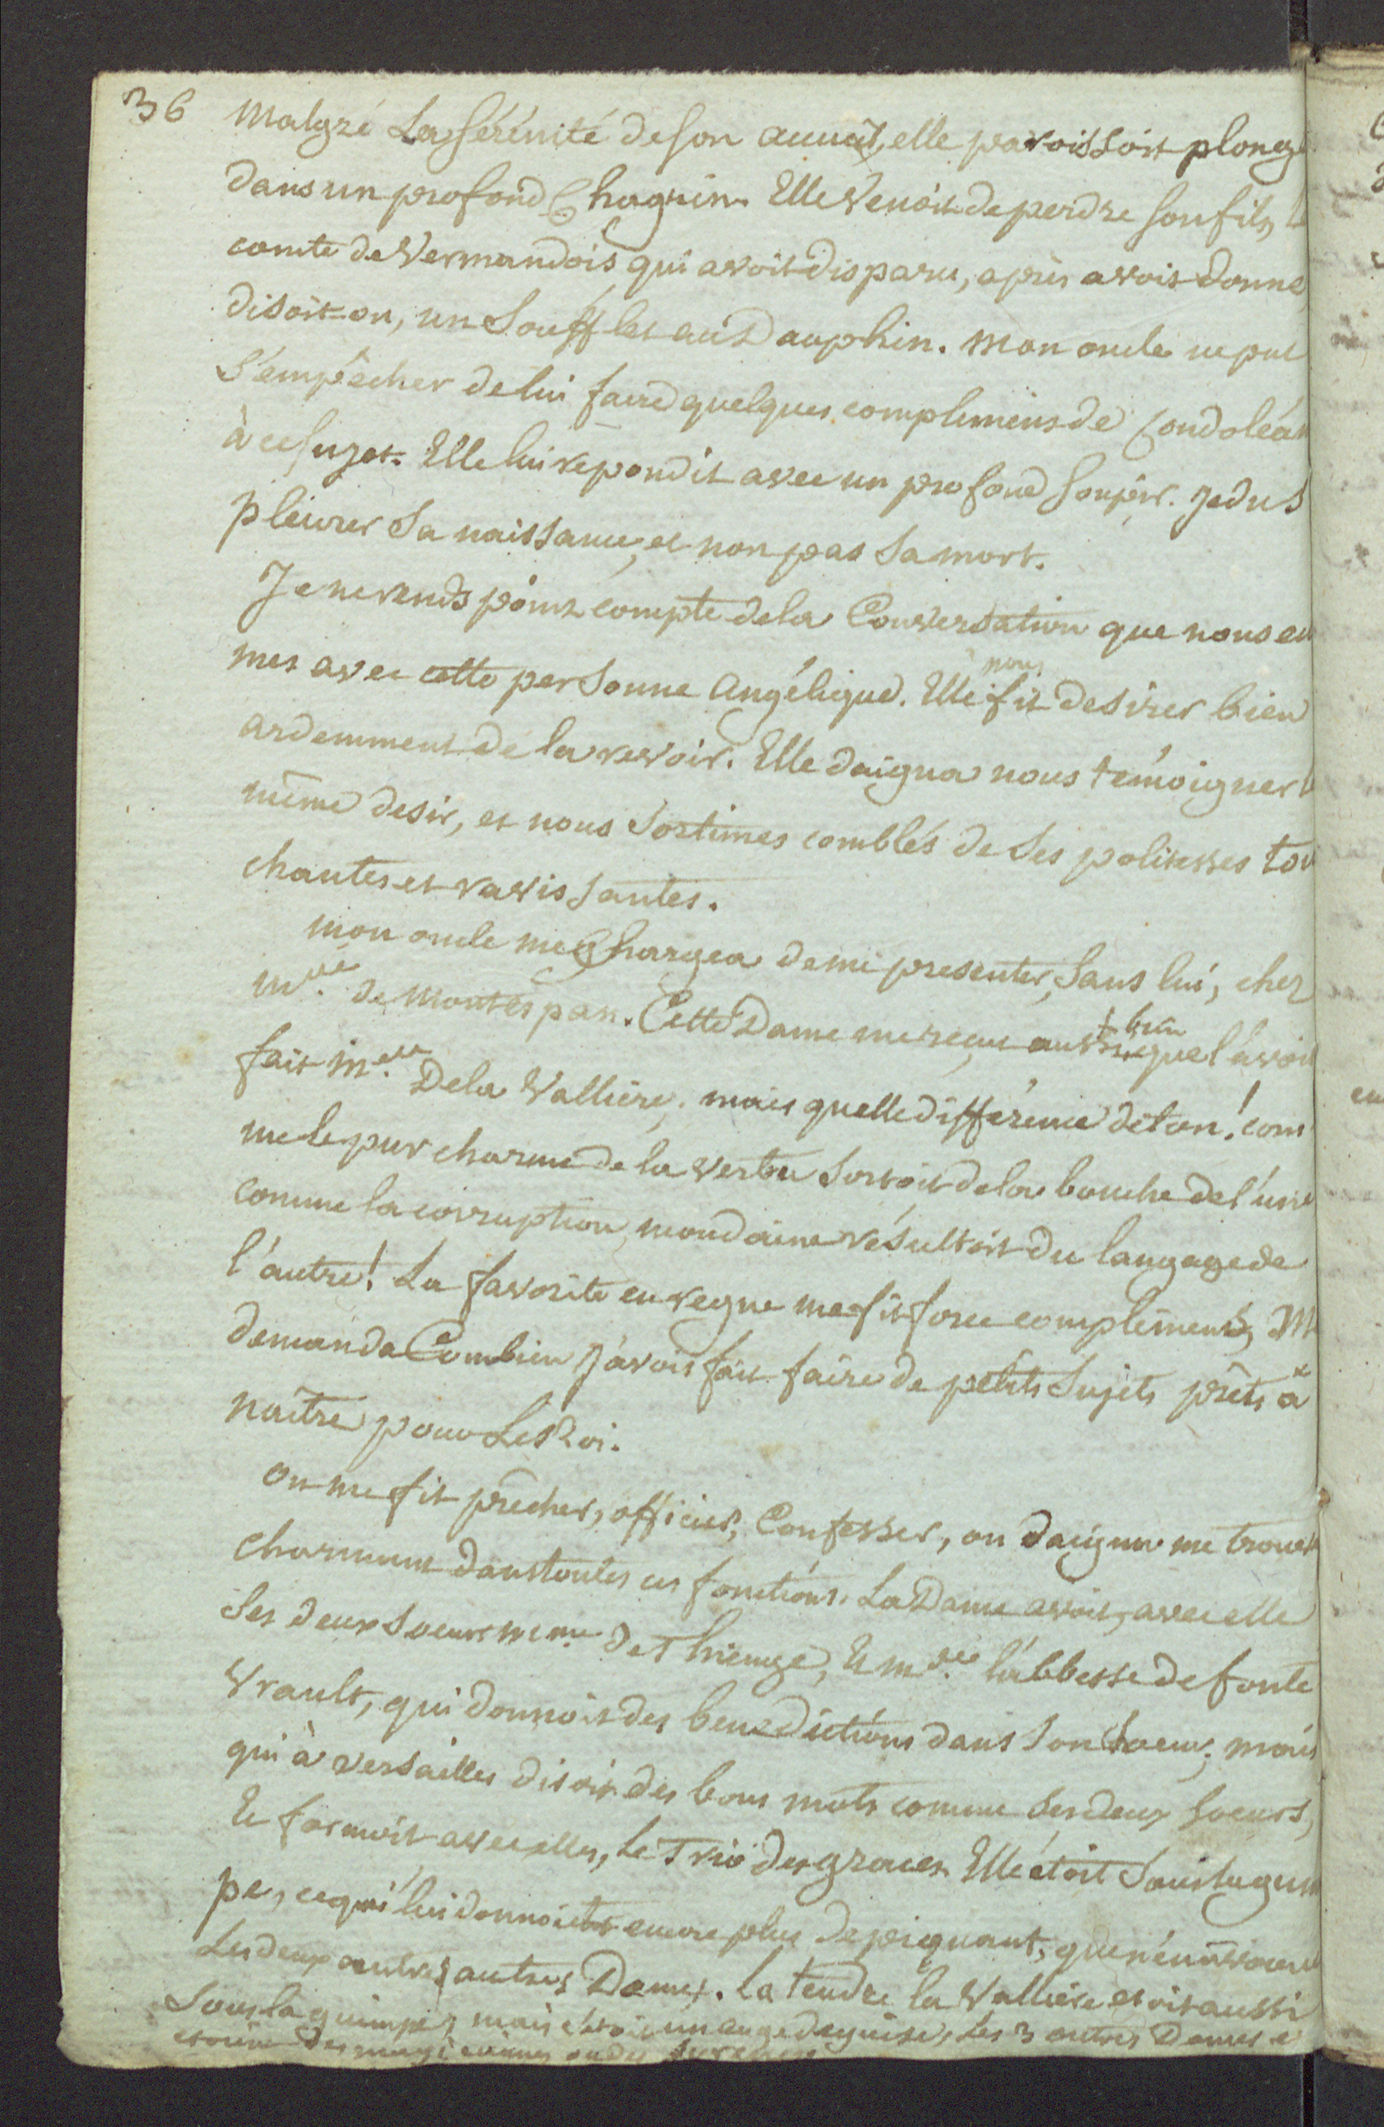 36
Malgré La Sérénité de son accueil, elle paroissoit plongé
dans un profond Chagrin. Elle Venoit de perdre son fils, le
comte de Vermandois, qui avoit disparu, après avoir donné
disoit-on, un Soufflet au Dauphin. Mon oncle ne put
S'empêcher de lui faire quelques complimens de Condoléan
à ce sujet. Elle lui repondit avec un profond soupir. Je dus
pleurer Sa naissance, et non pas Sa mort.
Je ne rends point compte de la Conversation que nous eu
mes avec cette personne Angélique. Elle nous fit desirer bien
ardemment de la revoir. Elle daigna nous témoigner l
même desir, et nous Sortimes comblés de Ses politesses tou
chantes et ravissantes.
Mon oncle me Chargea de me presenter, Sans lui, chez
Mde de Montespan. Cette Dame me reçut aussi bien que l'avoit
fait Mde De la Valliere; mais quelle différence de ton! com
me le pur charme de la Vertu Sortoit de la bouche de l'une
comme la corruption mondaine résultoit du langage de
l'autre! La favorite en regne me fit force complimens, Me
demanda Combien J'avois fait faire de petits Sujets prêts à
naître pour Le Roi.
On me fit prêcher, officier, Confesser, on daigna me trouver
charmant dans toutes ces fonctions. La Dame avoit, avec elle
Ses deux Soeurs Mme De Thienge, Et Mde l'abbesse de Fonte
Vrault, qui donnoit des benedictions dans Son ; mais
qui à Versailles disoit des bons mots comme Ses deux Soeurs,
Et formoit avec elles, Le Trio des graces. Elle étoit Sous la guim
pe, ce qui lui donnoit encore plus de piquant, que n'en avoient
Les deux autres Dames. La tendre la Valliere etoit aussi
Sous la guimpe; mais c'etoit un ange deguisé, Les 3 autres Dames e
etoient des magiciennes ou des